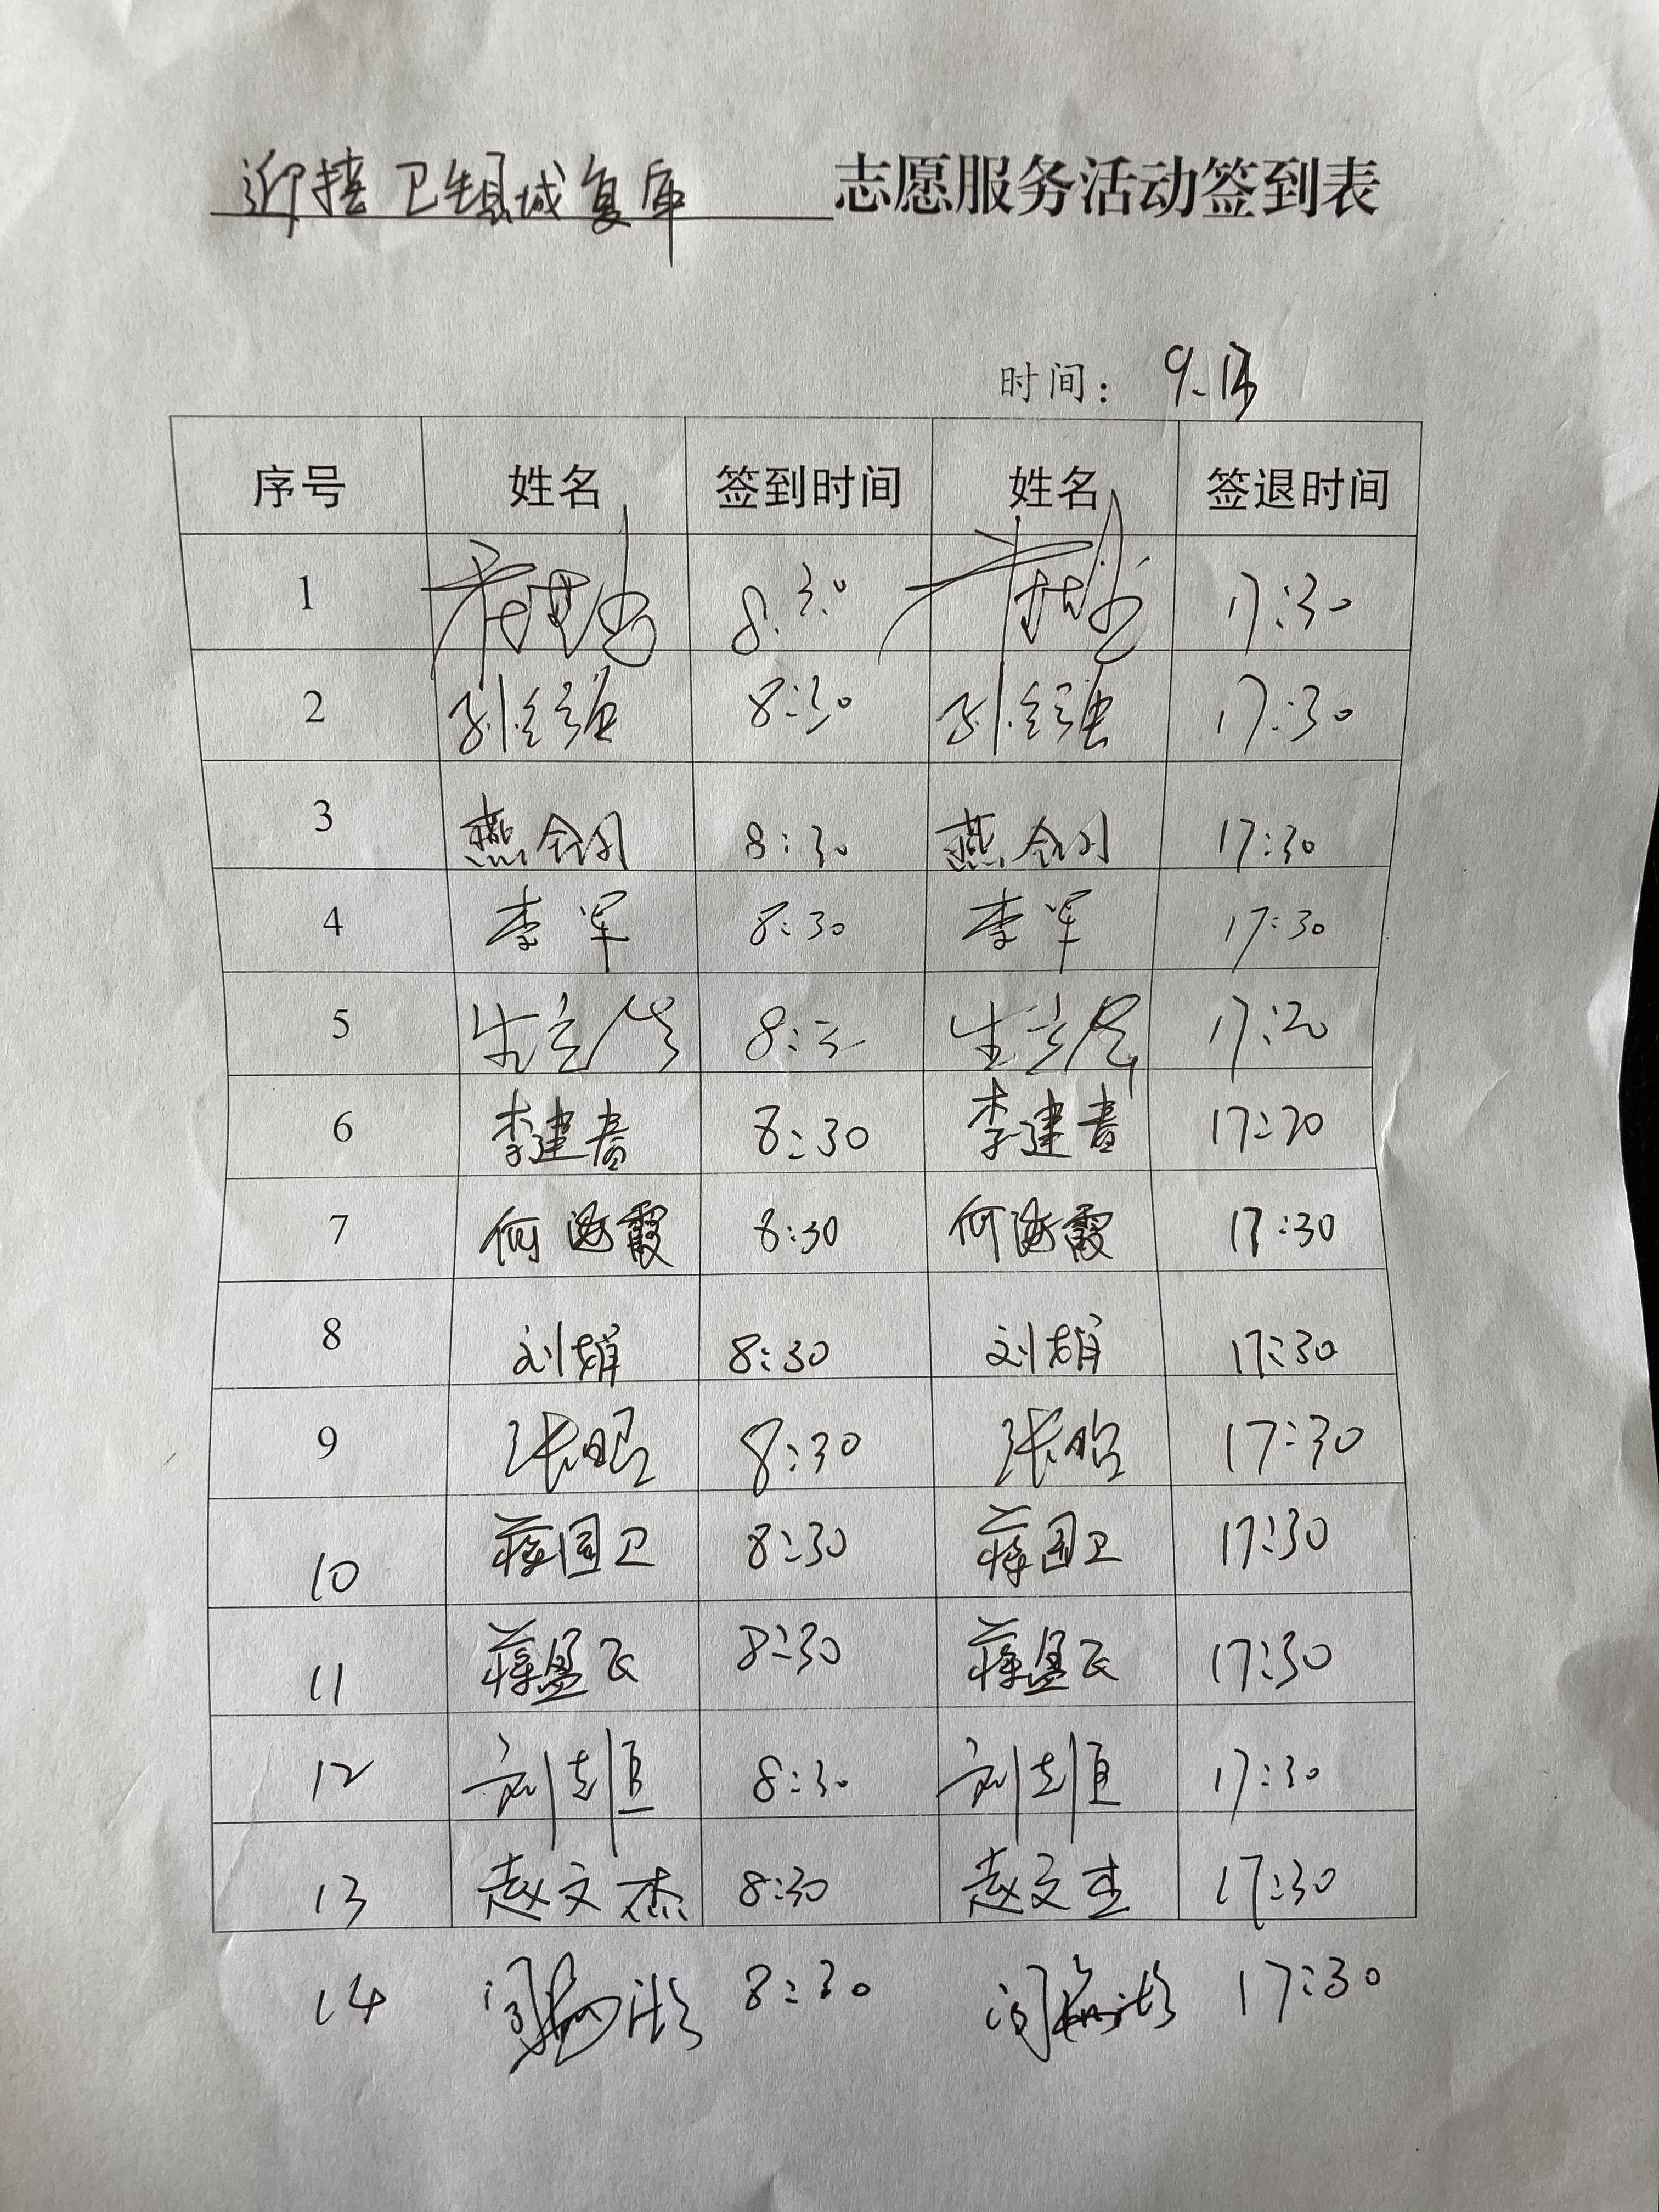 迎接卫生县城复审 志愿服务活动签到表
时间： 9.13
序号 姓名 签到时间 姓名 签退时间
1 8:30 17:30
2 孙 8:30 孙 17:30
3 燕 8:30 燕 17:30
4 李军 8:30 李军 17:30
5 8:30 17:30
6 李建春 8:30 李建春 17:30
7 何海霞 8:30 何海霞 17:30
8 刘婧 8:30 刘婧 17:30
9 张昭 8:30 张昭 17:30
10 蒋国卫 8:30 蒋国卫 17:30
11 蒋显飞 8:30 蒋显飞 17:30
12 刘 8:30 刘 17:30
13 赵文杰 8:30 赵文杰 17:30
14 8:30 17:30